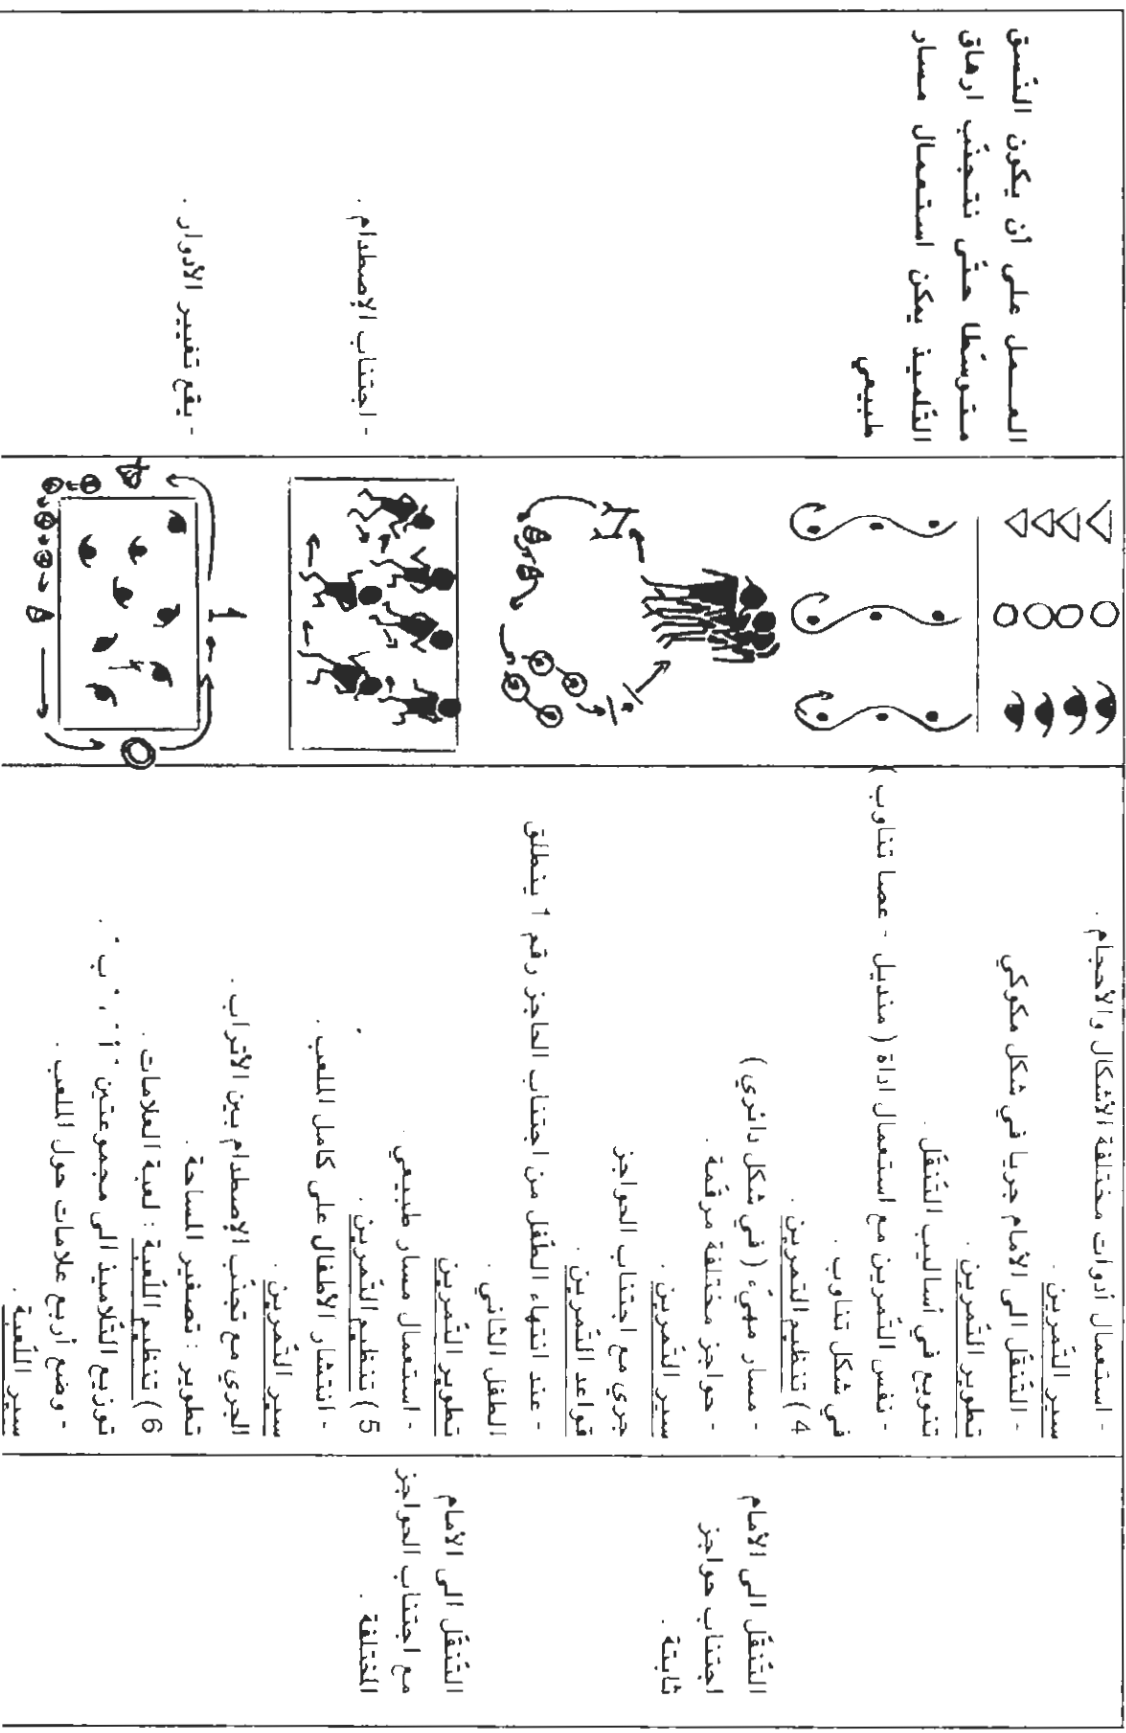 التّنقّل الى الأمام
اجتناب حواجز
ثابتة .
التّنقّل الى الأمام
مع اجتناب الحواجز
المختلفة .
- استعمال أدوات مختلفة الأشكال والأحجام .
سير التّمرين .
- التّنقّل الى الأمام جريا في شكل مكوكي
تطوير التّمرين .
تنويع في أساليب التّنقّل .
- نفس التّمرين مع استعمال اداة ( منديل - عصا تناوب )
في شكل تناوب .
4 ) تنظيم التمرين .
- مسار مهيّء ( في شكل دائري )
- حواجز مختلفة مرقّمة .
سير التّمرين .
جري مع اجتناب الحواجز
قواعد التّمرين .
- عند انتهاء الطّفل من اجتناب الحاجز رقم 1 ينطلق
الطفل الثّاني .
تطوير التّمرين
- استعمال مسار طبيعي .
5 ) تنظيم التّمرين .
- انتشار الأطفال على كامل الملعب .
سير التّمرين .
الجري مع تجنّب الإصطدام بين الأتراب .
تطوير : تصغير المساحة .
6 ) تنظيم اللّعبة : لعبة العلامات .
توزيع التّلاميذ الى مجموعتين " أ " ، " ب " .
- وضع أربع علامات حول الملعب .
سير اللّعبة .
العمل على أن يكون النّسق
متوسّطا حتّى نتجنّب ارهاق
التّلميذ يمكن استعمال مسار
طبيعي
- اجتناب الإصطدام .
- يقع تغيير الأدوار .